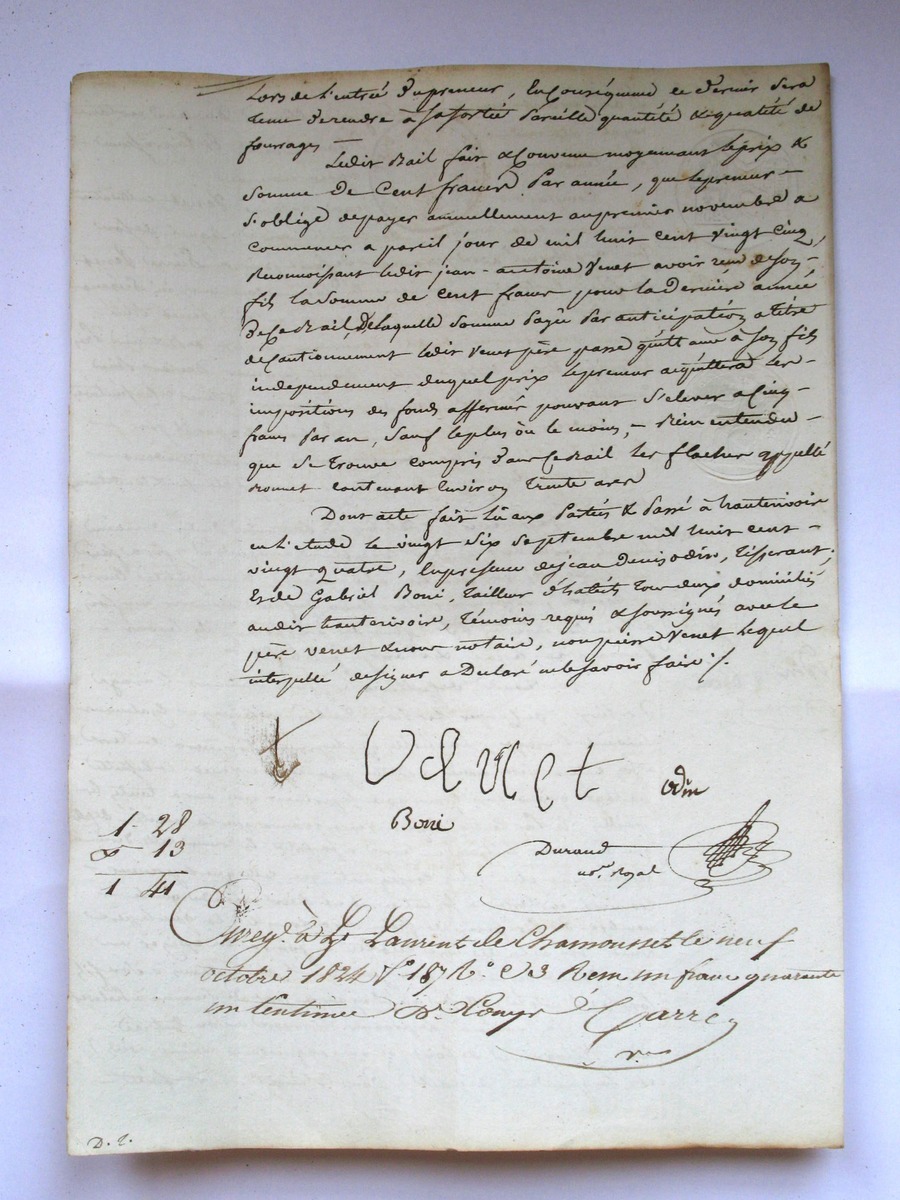 Lors de l'entrée du preneur, En Conséquence ce dernier sera
tenu de rendre à sa sortie Pareille quantité & qualité de
fourrages —
Ledit Bail fait & Convenu moyennant le prix &
Somme de Cent francs Par année, que le preneur -
S'oblige de payer annuellement au premier novembre a
Commencer a pareil jour de mil huit cent vingt Cinq,
Reconnoissant ledit jean-antoine Venet avoir reçu de son
fils la Somme de Cent francs pour la Dernière année
De Ce Bail, De laquelle Somme Payée Par anticipation a titre
de Cautionnement ledit Venet père passe quittance à Son fils
independament duquel prix le preneur acquittera les -
impositions des fonds affermés pouvant S'elever a Cinq -
francs Par an, Sauf le plus ou le moins, - Bien entendu -
que Se trouve Compris dans Ce Bail les flaches appellé
Contenant Environ Trente ares
Dont acte fait lû aux Parties & Passé à hauterivoire
en l'etude le vingt Six Septembre mil huit cent -
vingt quatre, En présence de jean Denis odin, Tisserant,
Et de Gabriel Boni, Tailleur d'habits tous deux domiciliés
audit hauterivoire, Témoins requis & Soussignés avec le
père venet & nous notaire, non pierre Venet lequel
interpellé de signer a Déclaré ne le Savoir faire ./.
t Venet odin
Boni
Durand
no.re royal
1 - 28
∝ 13
1 41
Enreg.é à St Laurent de Chamousset le neuf
octobre 1824 f.o 187 R.o C 3 Reçu un franc quarante
un Centimes D.e Compr Carre
D. 2.